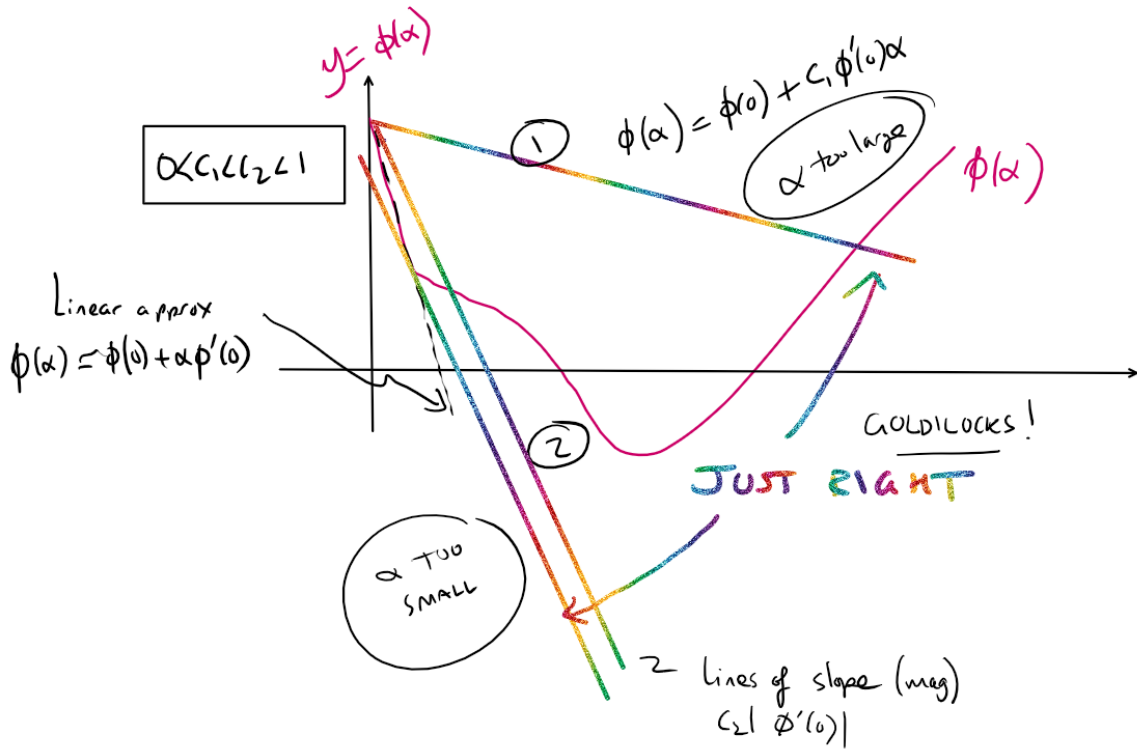 y = ϕ(α)
ϕ(α) = ϕ(0) + C₁ ϕ'(0)α
1
α too large
0<C₁<C₂<1
ϕ(α)
Linear approx
ϕ(α) ≃ ϕ(0) + αϕ'(0)
GOLDILOCKS!
2
JUST RIGHT
α TOO
SMALL
2 Lines of slope (mag)
C₂| ϕ'(0)|